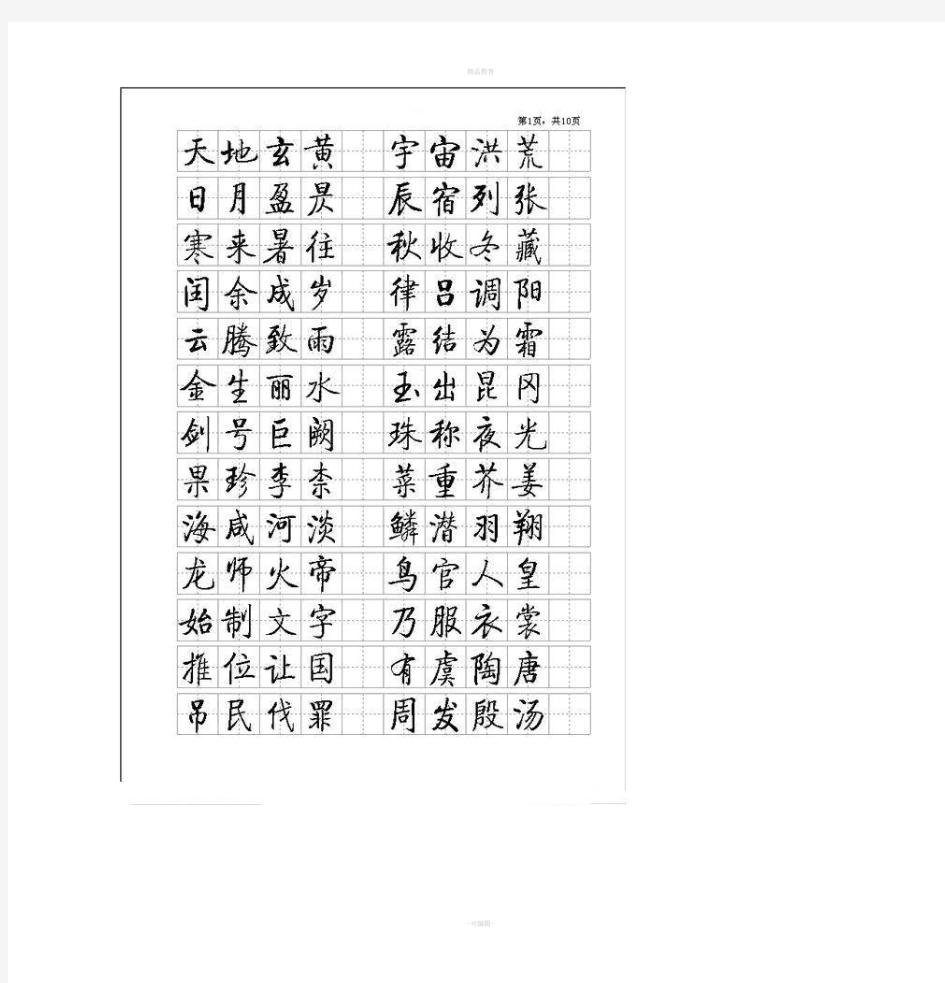 精品教育
第1页，共10页
天地玄黄 宇宙洪荒
日月盈昃 辰宿列张
寒来暑往 秋收冬藏
闰余成岁 律吕调阳
云腾致雨 露结为霜
金生丽水 玉出昆冈
剑号巨阙 珠称夜光
果珍李柰 菜重芥姜
海咸河淡 鳞潜羽翔
龙师火帝 鸟官人皇
始制文字 乃服衣裳
推位让国 有虞陶唐
吊民伐罪 周发殷汤
-可编辑-